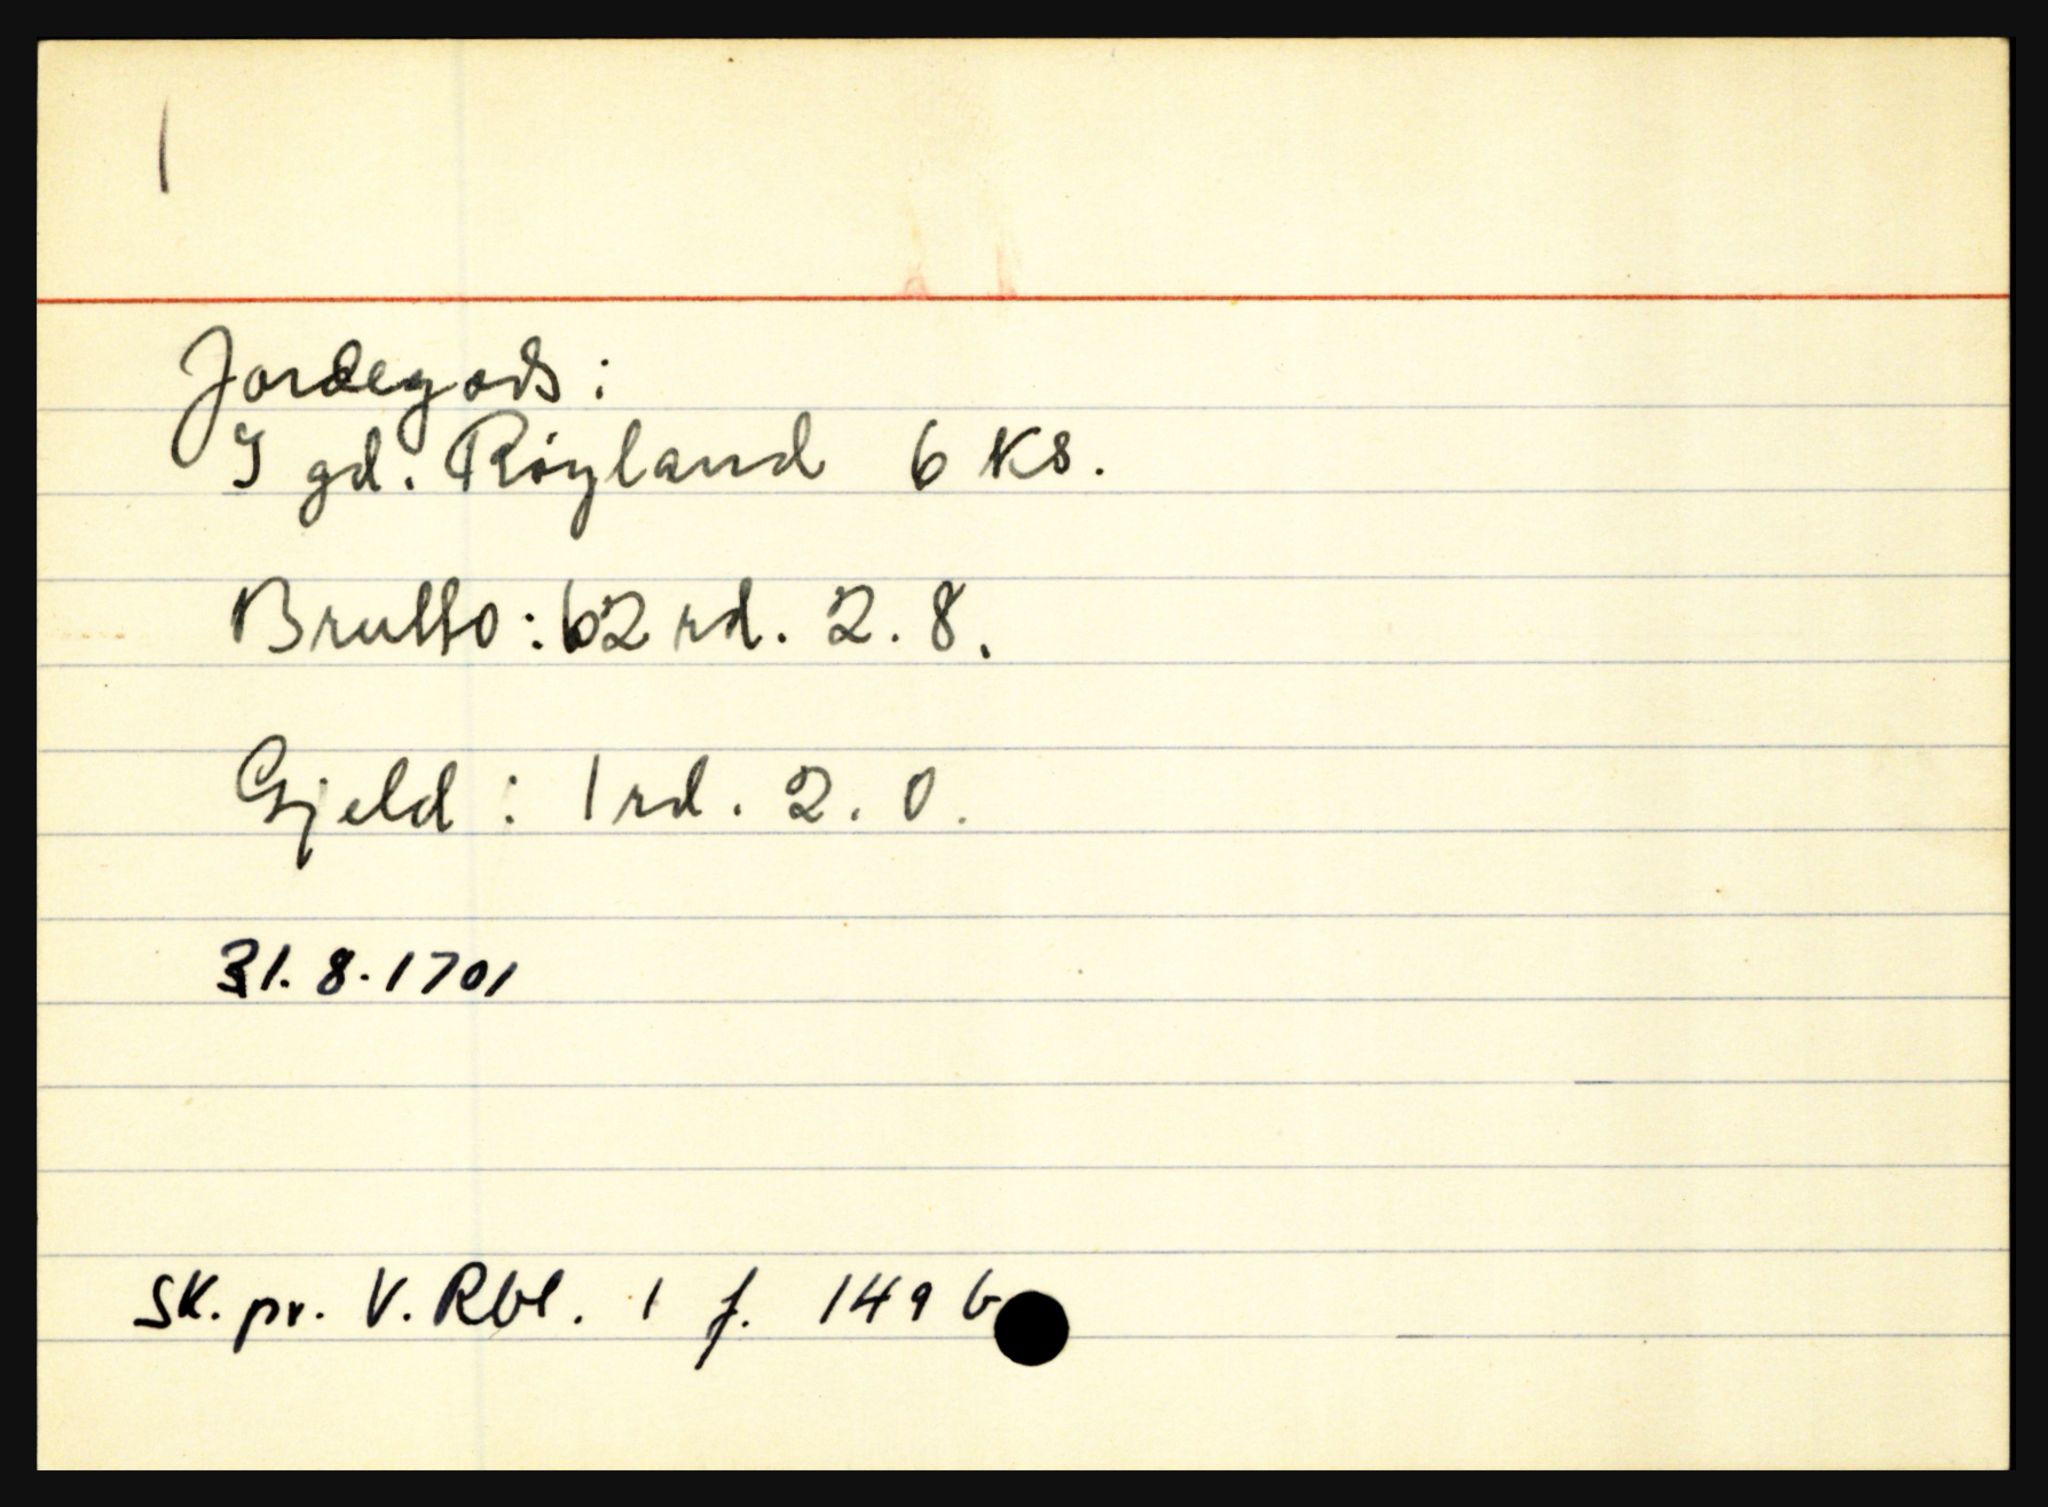 Jordegods:
I gd. Røyland 6 Ks.
Brutto: 62 rd. 2. 8.
Gjeld: 1 rd. 2. 0.
31. 8. 1701
Sk. pr. V. Rbl. 1 f. 149 b